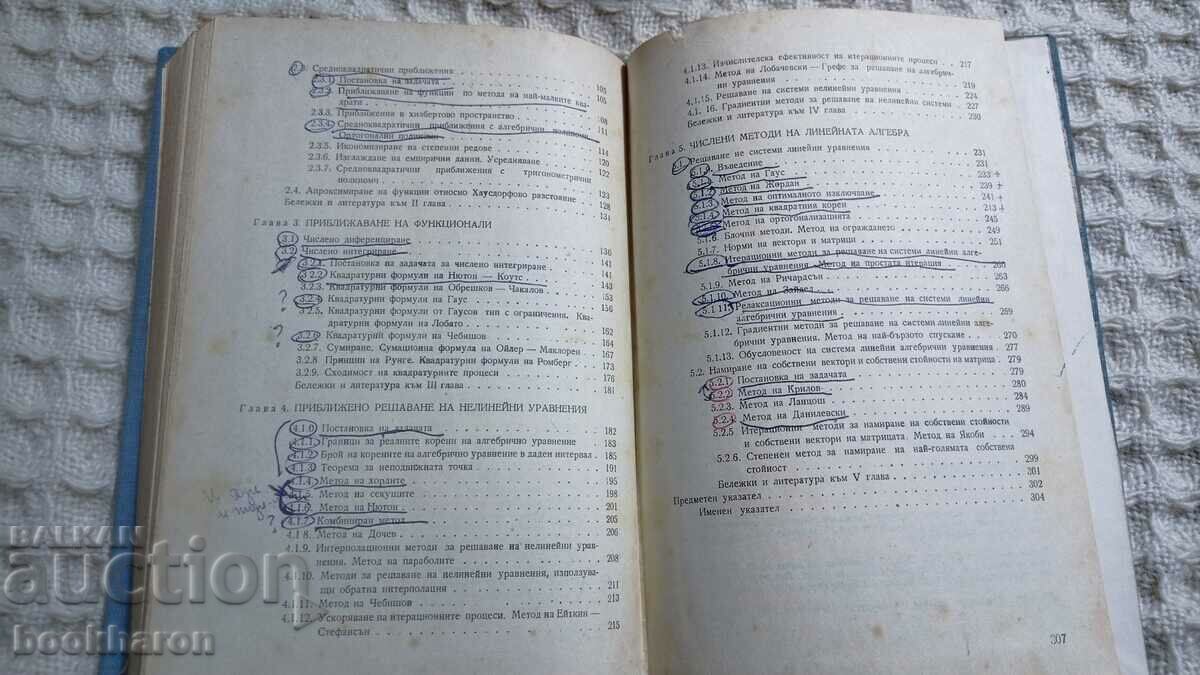 2.3. Средноквадратични приближения
2.3.1. Постановка на задачата . 105
2.3.2. Приближаване на функции по метода на най-малките квадрати 105
2.3.3. Приближения в хилбертово пространство 108
2.3.4. Средноквадратични приближения с алгебрични полиноми. 111
Ортогонални полиноми
2.3.5. Икономизиране на степенни редове 114
2.3.6. Изглаждане на емпирични данни. Усредняване 120
2.3.7. Средноквадратични приближения с тригонометрични 122
полиноми
2.4. Апроксимиране на функции относно Хаусдорфово разстояние 128
Бележки и литература към II глава 131
Глава 3. ПРИБЛИЖАВАНЕ НА ФУНКЦИОНАЛИ
3.1. Числено диференциране 136
3.2. Числено интегриране 141
3.2.1. Постановка на задачата за числено интегриране 141
3.2.2. Квадратурни формули на Нютон — Коутс 143
3.2.3. Квадратурни формули на Обрешков — Чакалов
? 3.2.4. Квадратурни формули на Гаус 153
3.2.5. Квадратурни формули от Гаусов тип с ограничения. Квадратурни формули на Лобато 156
?
3.2.6. Квадратурни формули на Чебишов 162
3.2.7. Сумиране. Сумационна формула на Ойлер — Маклорен 164
3.2.8 Принцип на Рунге. Квадратурни формули на Ромберг 173
3.2.9. Сходимост на квадратурните процеси 176
Бележки и литература към III глава 181
Глава 4. ПРИБЛИЖЕНО РЕШАВАНЕ НА НЕЛИНЕЙНИ УРАВНЕНИЯ
4.1.0. Постановка на задачата 182
4.1.1. Граници за реалните корени на алгебрично уравнение 183
4.1.2. Брой на корените на алгебрично уравнение в даден интервал 185
4.1.3. Теорема за неподвижната точка 191
4.1.4. Метод на хордите 195
4.1.5. Метод на секущите 198
4.1.6. Метод на Нютон 201
? 4.1.7. Комбиниран метод 205
4.1.8. Метод на Дочев 206
4.1.9. Интерполационни методи за решаване на нелинейни уравнения. Метод на параболите 208
4.1.10. Методи за решаване на нелинейни уравнения, използуващи обратна интерполация 211
4.1.11. Метод на Чебишов 213
4.1.12. Ускоряване на итерационните процеси. Метод на Ейткин —
Стефансън 215
4.1.13. Изчислителска ефективност на итерационните процеси 217
4.1.14. Метод на Лобачевски — Грефе за решаване на алгебрични уравнения 219
4.1.15. Решаване на системи нелинейни уравнения 224
4.1.16. Градиентни методи за решаване на нелинейни системи 227
Бележки и литература към IV глава 230
Глава 5. ЧИСЛЕНИ МЕТОДИ НА ЛИНЕЙНАТА АЛГЕБРА
5.1. Решаване не системи линейни уравнения 231
Въведение 231
5.1.1. Метод на Гаус 233 +
5.1.2. Метод на Жордан 239 +
5.1.3. Метод на оптималното изключване 241 +
5.1.4. Метод на квадратния корен 213 +
Метод на ортогонализацията 245
5.1.6. Блочни методи. Метод на ограждането 249
5.1.7. Норми на вектори и матрици 251
5.1.8. Итерационни методи за решаване на системи линейни алгебрични уравнения. Метод на простата итерация 260
5.1.9. Метод на Ричардсън 265
5.1.10. Метод на Зайдел 266
5.1.11. Релаксационни методи за решаване на системи линейни
алгебрични уравнения 269
5.1.12. Градиентни методи за решаване на системи линейни алгебрични уравнения. Метод на най-бързото спускане 270
5.1.13. Обусловеност на система линейни алгебрични уравнения 277
5.2. Намиране на собствени вектори и собствени стойности на матрица 279
5.2.1. Постановка на задачата 279
5.2.2. Метод на Крилов 280
5.2.3. Метод на Ланцош 284
5.2.4. Метод на Данилевски 289
5.2.5 Итерационни методи за намиране на собствени стойности
и собствени вектори на матрицата. Метод на Якоби 294
5.2.6. Степенен метод за намиране на най-голямата собствена
стойност 299
Бележки и литература към V глава 301
Предметен указател 302
Именен указател 304
307
БАЛКАН
auction
bookharon